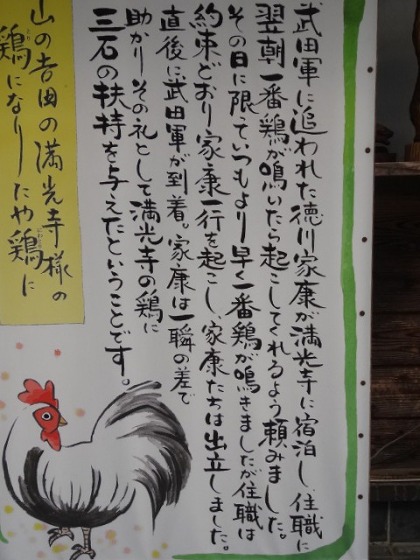 武田軍に追われた徳川家康が満光寺に宿泊し、住職に
翌朝一番鶏が鳴いたら起こしてくれるよう頼みました。
その日に限っていつもより早く一番鶏が鳴きましたが住職は
約束どおり家康一行を起こし、家康たちは出立しました。
直後に武田軍が到着。家康は一瞬の差で
助かりその礼として満光寺の鶏に
三石の扶持を与えたということです。
山の吉田の満光寺様の
鶏になりしたや鶏に